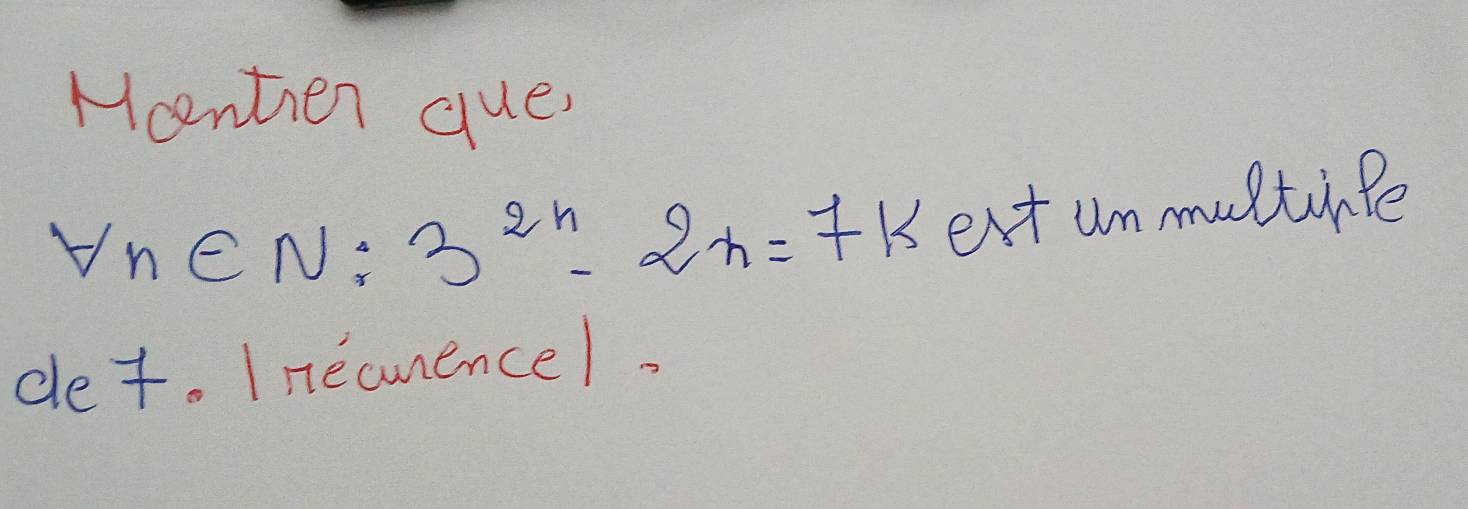 Montrer que,
∀n ∈ N : 3^{2n} - 2n = 7K est un multiple
de 7. (récurence).